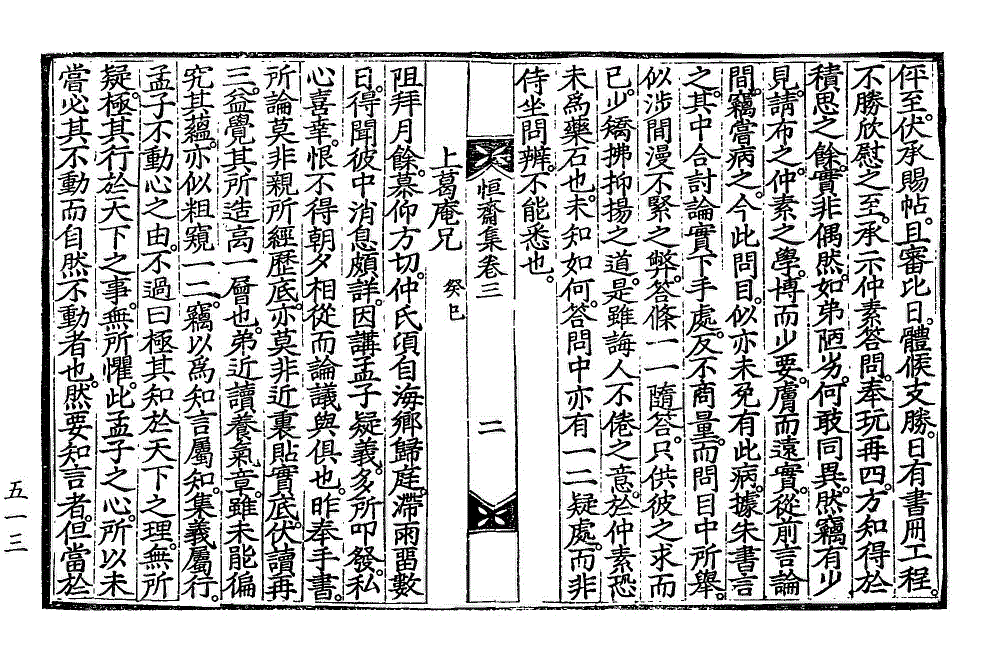 伻至。伏承賜帖。且審比日。體候支勝。日有書冊工程。
不勝欣慰之至。承示仲素答問。奉玩再四。方知得於
積思之餘。實非偶然。如弟陋劣。何敢同異。然竊有少
見。請布之。仲素之學。博而少要。膚而遠實。從前言論
間。竊嘗病之。今此問目。似亦未免有此病。據朱書言
之。其中合討論實下手處。反不商量。而問目中所舉。
似涉閒漫不緊之弊。答條一一隨答。只供彼之求而
已。少矯拂抑揚之道。是雖誨人不倦之意。於仲素恐
未爲藥石也。未知如何。答問中亦有一二疑處。而非
侍坐問辨。不能悉也。
恒齋集卷三
二
上葛庵兄 癸巳
阻拜月餘。慕仰方切。仲氏頃自海鄉歸庭。滯雨留數
日。得聞彼中消息頗詳。因講孟子疑義。多所叩發。私
心喜幸。恨不得朝夕相從而論議與俱也。昨奉手書。
所論莫非親所經歷底。亦莫非近裏貼實底。伏讀再
三。益覺其所造高一層也。弟近讀養氣章。雖未能偏
究其蘊。亦似粗窺一二。竊以爲知言屬知。集義屬行。
孟子不動心之由。不過曰極其知於天下之理。無所
疑。極其行於天下之事。無所懼。此孟子之心。所以未
嘗必其不動而自然不動者也。然要知言者。但當於
五一三